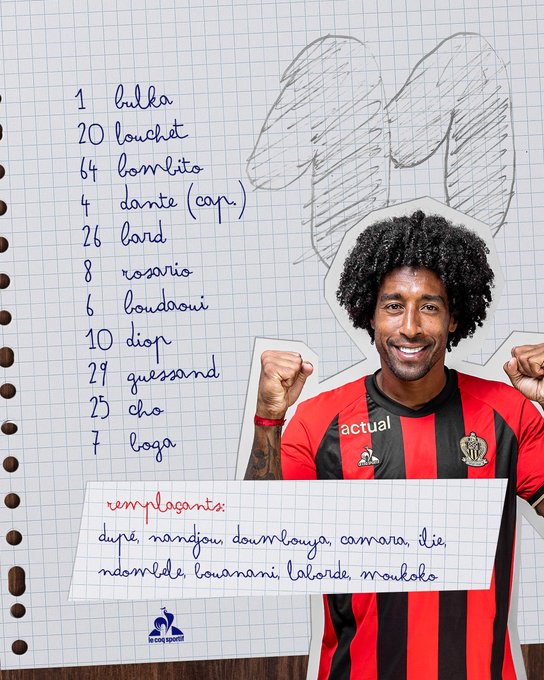 11
1 bulka
20 louchet
64 bombito
4 dante (cap.)
26 bard
8 rosario
6 boudaoui
10 diop
29 guessand
25 cho
7 boga
actual
le coq sportif
remplaçants:
dupé, nandjou, doumbouya, camara, ilie,
ndombele, bouanani, laborde, moukoko
le coq sportif